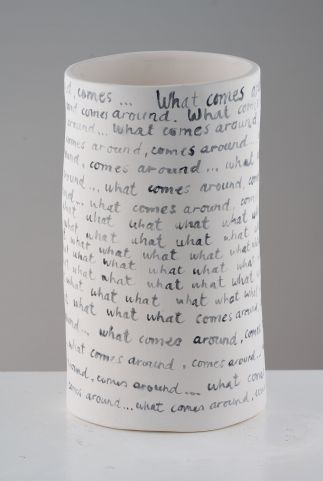 comes ... What comes
comes around. What
around... what comes around
comes around, comes around...
comes around... what
what comes around,
what comes around,
what what what what what
what what what what
what what what what what
what what what what what
what what what what what
what what what what what what
what what what comes around,
what comes around,
what comes around, comes around...
comes around... what
comes around... what comes around,